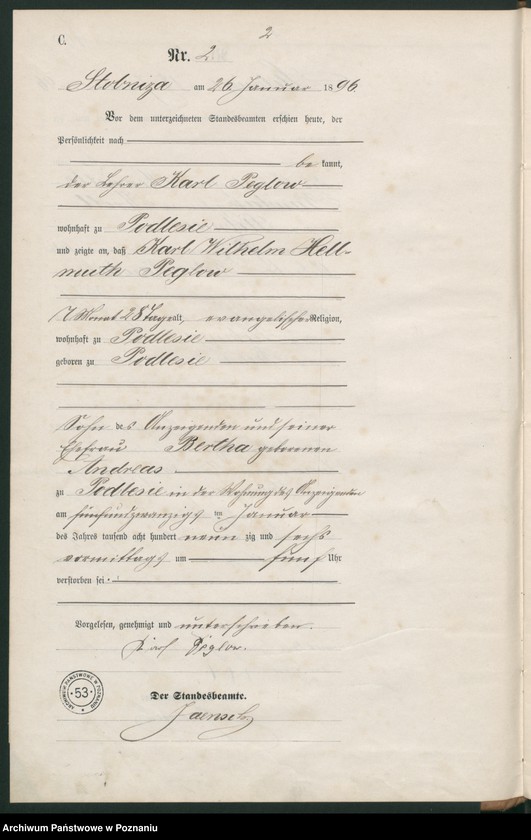 C.
2
Nr. 2
Stobniza am 26 Januar 1896
Vor dem unterzeichneten Standesbeamten erschien heute, der
Persönlichkeit nach
be kannt,
der Lehrer Karl Peglow
wohnhaft zu Podlesie
und zeigte an, daß Karl Wilhelm Hell-
muth Peglow
7 Monat 28 Tage alt, evangelischer Religion,
wohnhaft zu Podlesie
geboren zu Podlesie
Sohn des Anzeigenden und seiner
Ehefrau Bertha geborenen
Andreas
zu Podlesie in der Wohnung des Anzeigenden
am fünfundzwanzigsten Januar
des Jahres tausend acht hundert neun zig und sechs
vormittags um fünf Uhr
verstorben sei.
Vorgelesen, genehmigt und unterschrieben.
Karl Peglow.
Der Standesbeamte.
Jaensch
ARCHIWUM PAŃSTWOWE W POZNANIU
53
Archiwum Państwowe w Poznaniu